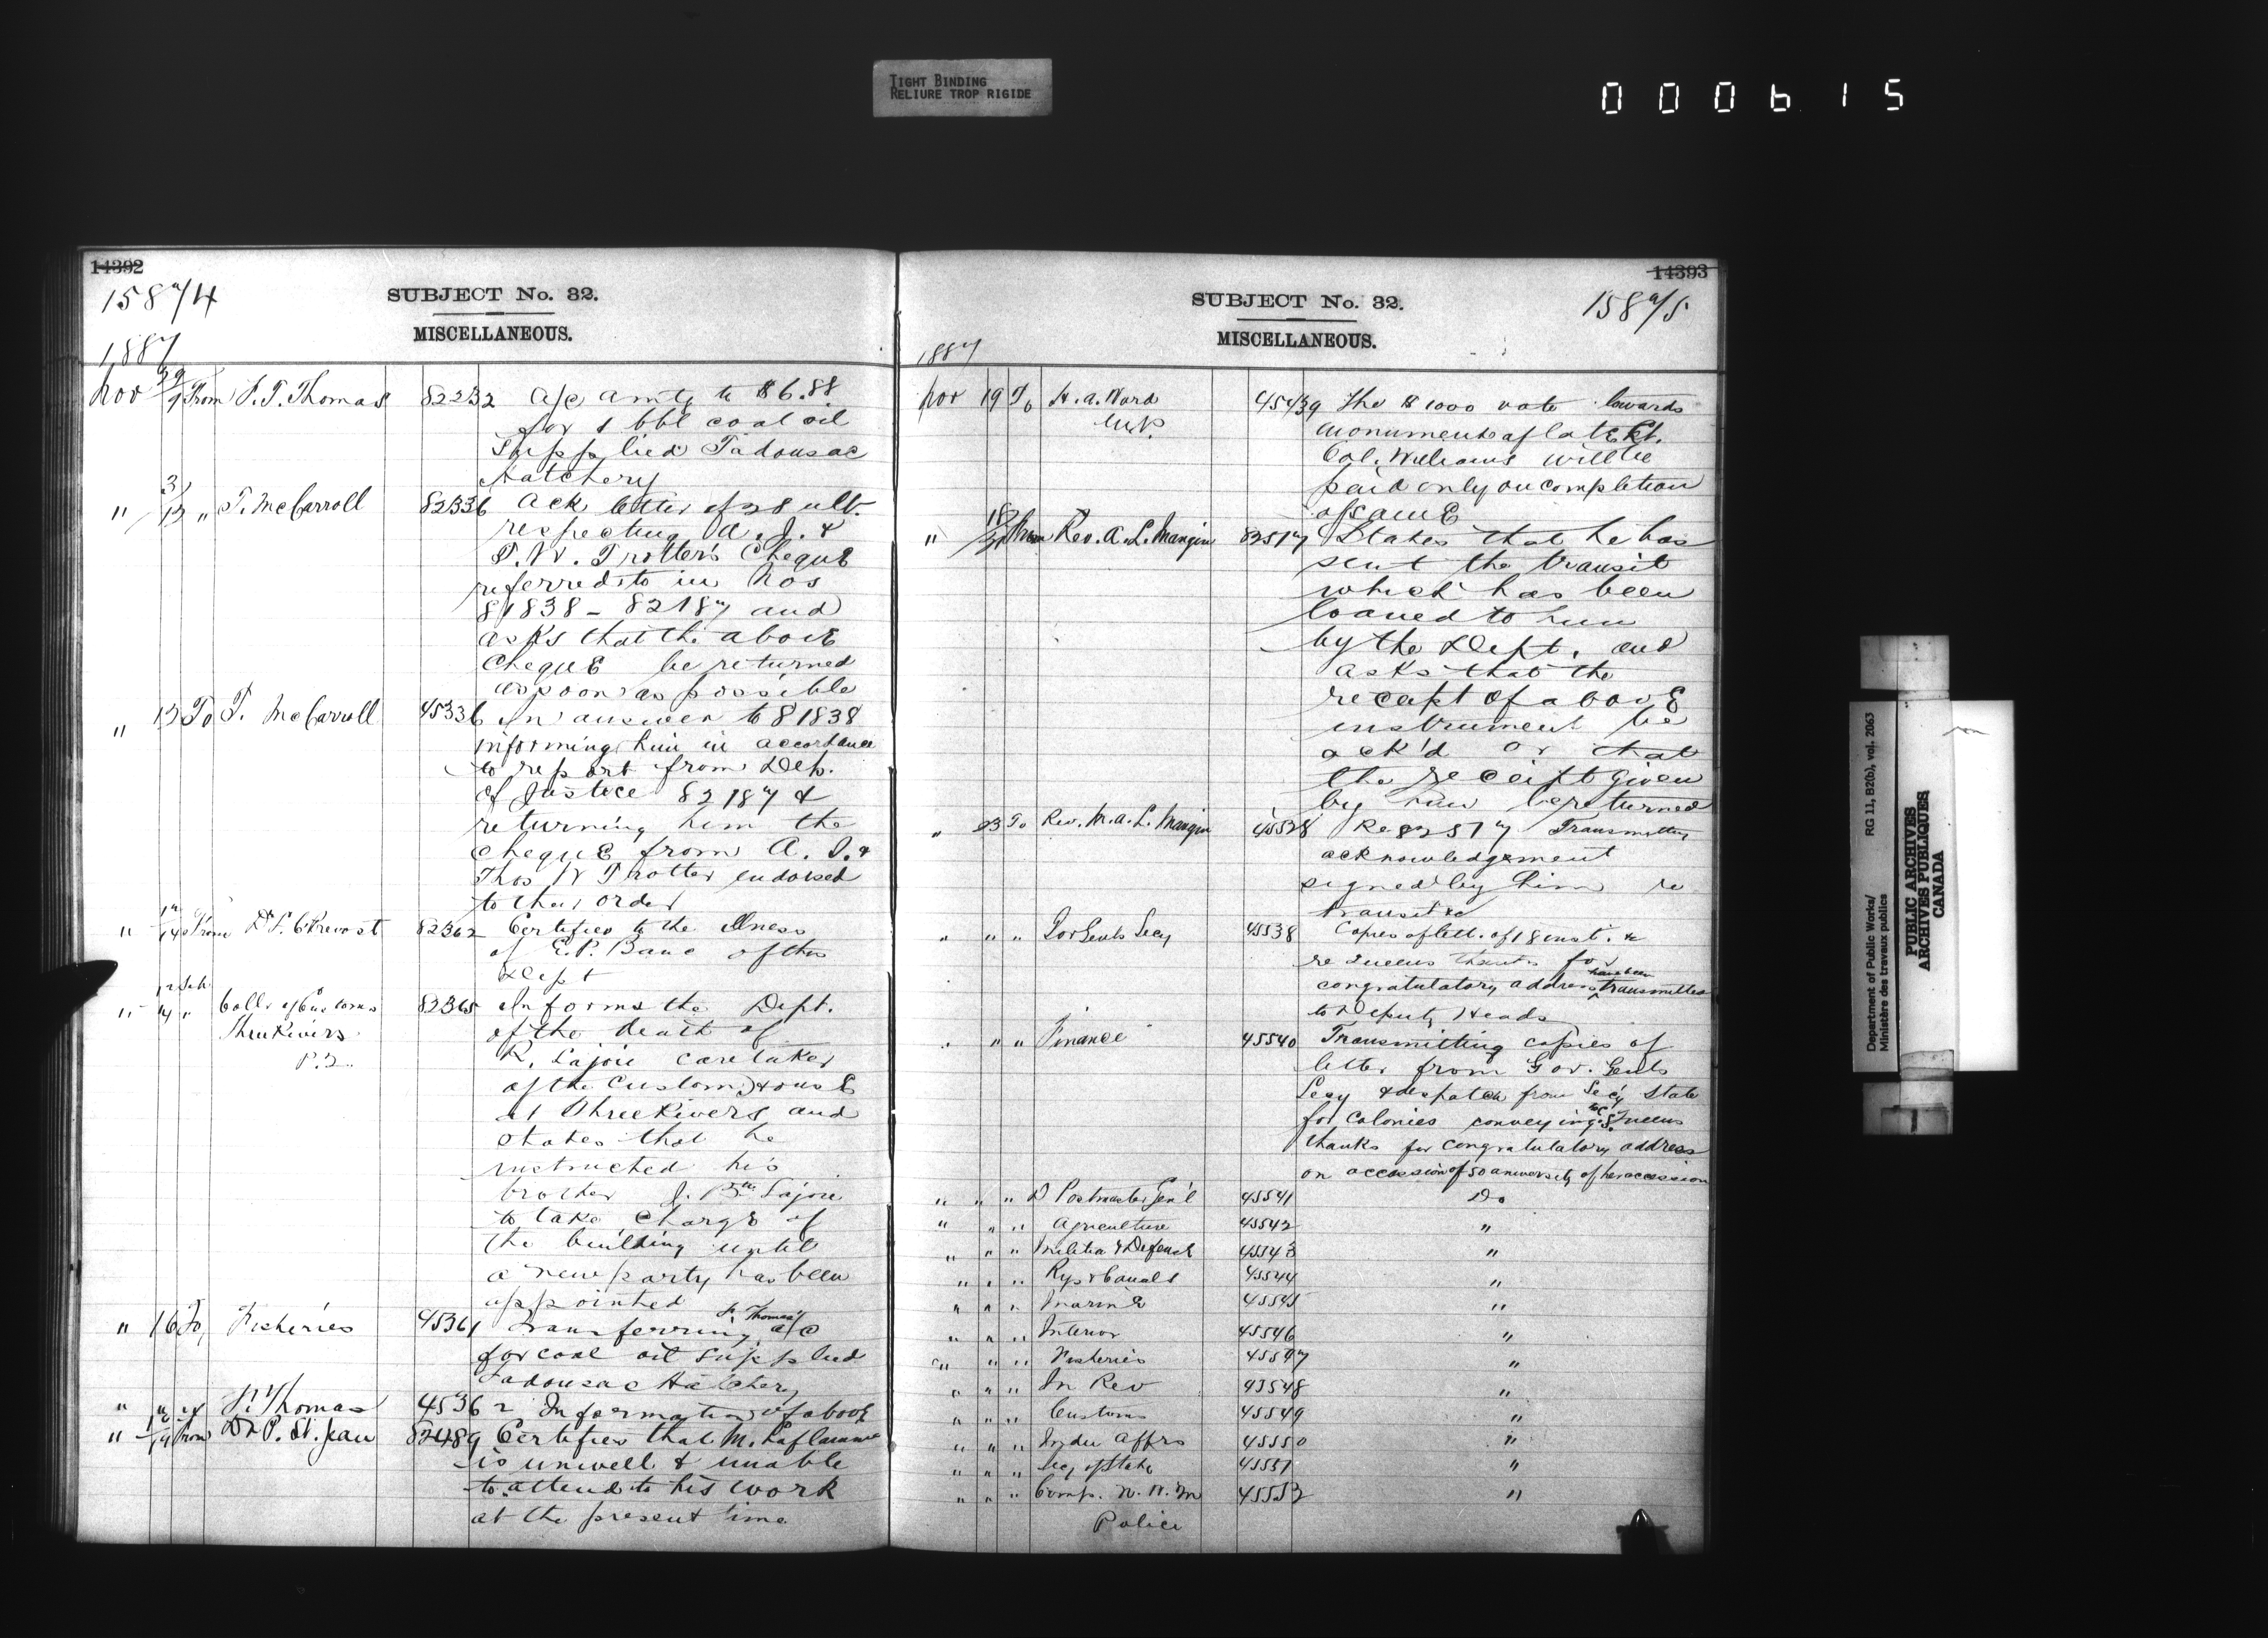 TIGHT BINDING
RELIURE TROP RIGIDE
000615
14392
15874
SUBJECT No. 32.
MISCELLANEOUS.
1887
Nov 9 From F. T. Thomas 82232 A/c amtg to $6.88
for 1 bbl coal oil
supplied Tadousac
Hatchery
" 12 " T. McCarroll 82336 Ack letter of 28 ult.
respecting A. J. &
T. W. Trotter's Cheque
referred to in Nos
81838 - 82187 and
asks that the above
Cheque be returned
as soon as possible
" 12 To T. McCarroll 45336 In answer to 81838
informing him in accordance
to report from Dep.
of Justice 82187 &
returning him the
cheque from A. J. &
Thos W Trotter endorsed
to their order
" 14 From Dr L. C. Prevost 82362 Certifies to the illness
of E. P. Bane of this
Dept
" 14 " Collr of Customs 82365 Informs the Dept.
Three Rivers of the death of
P.Q. R. Lajoie caretaker
of the Custom House
at Three Rivers and
states that he
instructed his
brother J. Bte Lajoie
to take charge of
the building until
a new party has been
appointed
" 16 To Fisheries 45361 Transferring F. Thomas a/c
for coal oil supplied
Tadousac Hatchery
" " " F. Thomas 45362 Information of above
" 19 From Dr P. St. Jean 82489 Certifies that M. Laflamme
is unwell & unable
to attend to his work
at the present time
14393
15875
SUBJECT No. 32.
MISCELLANEOUS.
1887
Nov 19 To H. A. Ward 45439 The $1000 vote towards
M.P. monument of late Lt.
Col. Williams will be
paid only on completion
of same
" 18/21 From Rev. A. L. Mangin 82517 States that he has
sent the transit
which has been
loaned to him
by the Dept. and
asks that the
receipt of above
instrument be
ack'd or that
the receipt given
by him be returned
" 23 To Rev. M. A. L. Mangin 45528 Re 82517 Transmitting
acknowledgement
signed by him re
transit &c
" " " Gov Genls Secy 45538 Copies of lett. of 18 inst. &
re Queens thanks for
congratulatory address have been transmitted
to Deputy Heads
" " " Finance 45540 Transmitting copies of
letter from Gov. Genls
Secy & despatch from Secy State
for Colonies conveying the Queens
thanks for congratulatory address
on occassion of 50 aniversity of her accession
" " " D Postmaster Gen'l 45541 Do
" " " Agriculture 45542 "
" " " Militia & Defence 45543 "
" " " Rys & Canals 45544 "
" " " Marine 45545 "
" " " Interior 45546 "
" " " Fisheries 45547 "
" " " In Rev 45548 "
" " " Customs 45549 "
" " " Indn Affrs 45550 "
" " " Secy of State 45551 "
" " " Comp. N. W. M 45552 "
Police
Department of Public Works/
Ministère des travaux publics
RG 11, B2(b), vol. 2063
PUBLIC ARCHIVES
ARCHIVES PUBLIQUES
CANADA